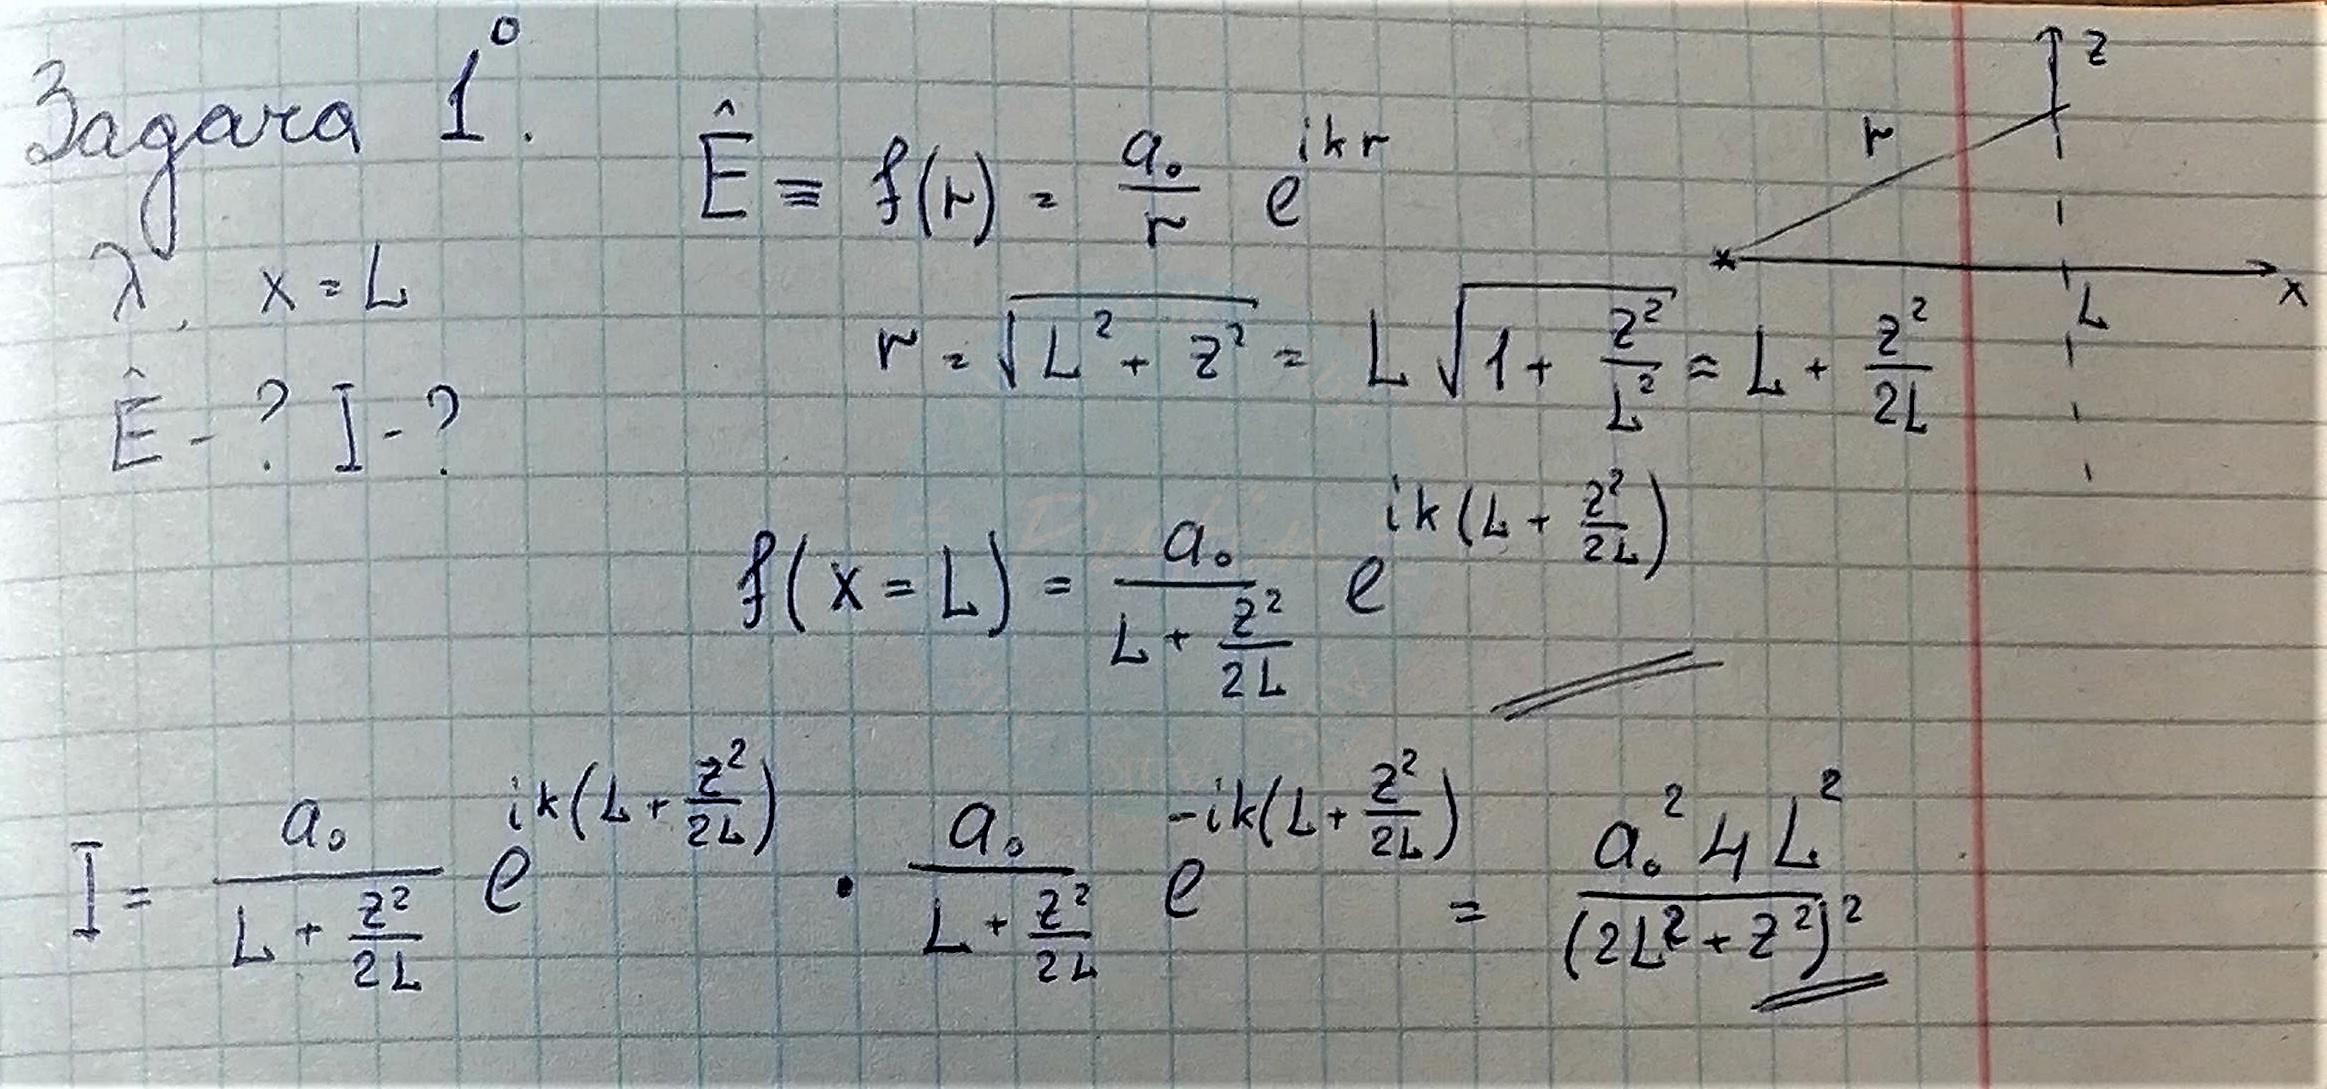 Задача 1⁰.
Ê ≡ f(r) = a₀/r e^{ikr}
z
r
x
L
λ, x = L
r = √(L² + z²) = L√(1 + z²/L²) ≈ L + z²/2L
Ê - ? I - ?
f(x = L) = a₀/(L + z²/2L) e^{ik(L + z²/2L)}
I = a₀/(L + z²/2L) e^{ik(L + z²/2L)} · a₀/(L + z²/2L) e^{-ik(L + z²/2L)} = a₀² 4L²/(2L² + z²)²